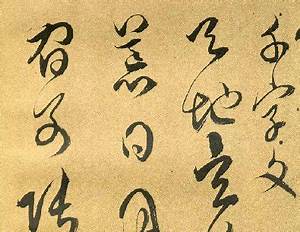 千字文
天地玄
荒日月
宿列張